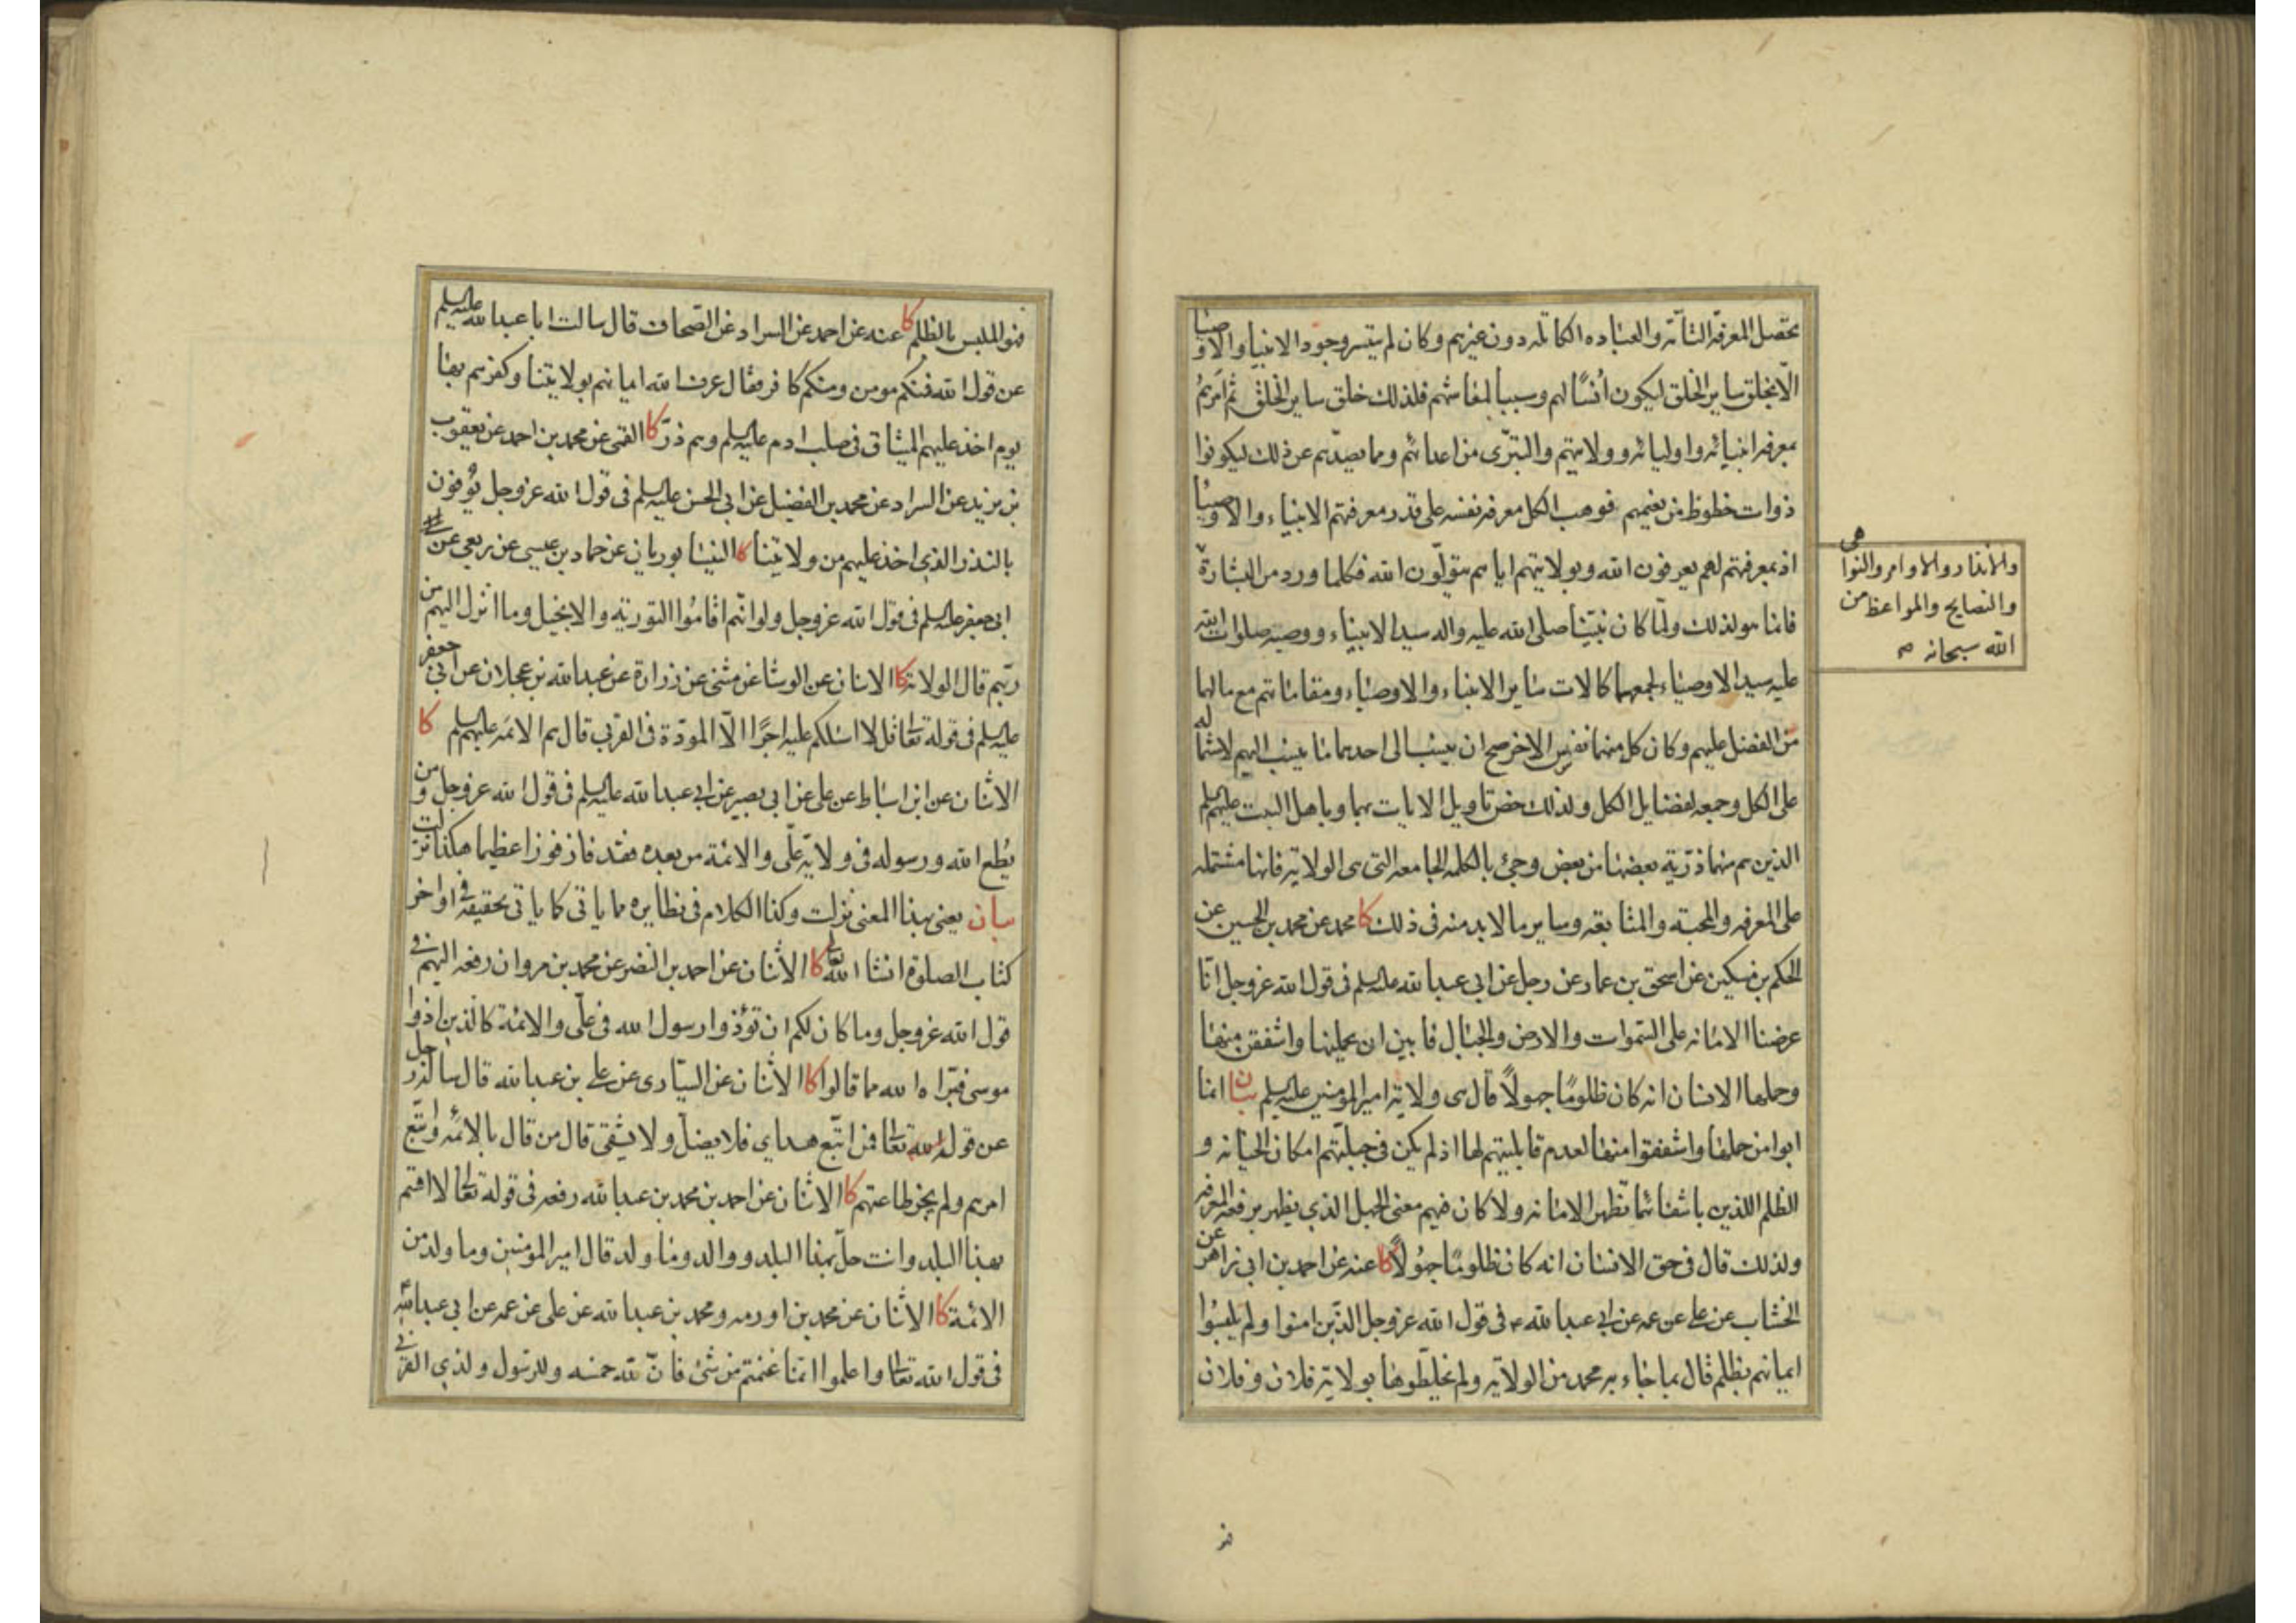 يحصل المعرفة التامة والعباده الكامله دون غيرهم وكان لم يتيسر وجود الانبيا والاوصيا
الا بخلق ساير الخلق ليكون أنسًا لهم وسببا لمعاشهم فلذلك خلق ساير الخلق ثم امرهم
بمعرفه انبيائه واوليائه وولايتهم والتبرّى من اعدائهم ومما يصدّهم عن ذلك ليكونوا
ذوات حظوظ من نعيمهم فوهب الكل معرفه نفسه على قدر معرفتهم الانبياء والاوصيا
اذ بمعرفتهم لهم يعرفون الله وبولايتهم اياهم يتولّون الله فكلما ورد من البشارة
والانذار والاوامر والنواهى
والنصايح والمواعظ من
الله سبحانه
فانما هو لذلك ولمّا كان نبيّنا صلى الله عليه واله سيد الانبياء ووصيه صلوات الله
عليه سيد الاوصياء لجمعهما كمالات ساير الانبياء والاوصياء ومقاماتهم مع ما لهما
من الفضل عليهم وكان كل منهما نفس الاخر صح ان ينسب الى احدهما ما ينسب اليهم لاشتماله
على الكل وجمعه لفضايل الكل ولذلك خص تاويل الايات بهما وباهل البيت عليهم السلم
الذين هم منهما ذرّية بعضها من بعض وجئ بالكلمه الجامعه التى هى الولاية فانها مشتمله
على المعرفه والمحبة والمتابعه وساير ما لا بد منه فى ذلك كا محمد عن محمد بن الحسين عن
الحكم بن مسكين عن اسحق بن عمار عن رجل عن ابى عبد الله عليه السلم فى قول الله عزوجل انّا
عرضنا الامانه على السّموات والارض والجبال فابين ان يحملنها واشفقن منها
وحملها الانسان انه كان ظلومًا جهولًا قال هى ولاية امير المؤمنين عليه السلم بيان انما
ابوا من حملها واشفقوا منها لعدم قابليتهم لها اذ لم يكن فى جبلّتهم امكان الخيانه و
الظلم اللذين بانتفائهما تظهر الامانه ولا كان فيهم معنى الجهل الذي يظهر برفعه المعرفه
ولذلك قال فى حق الانسان انه كان ظلومًا جهُولًا كا عنه عن احمد بن ابى زاهر عن
الخشاب عن على عن عمه عن ابى عبد الله ع فى قول الله عزوجل الذّين امنوا ولم يلبسُوا
ايمانهم بظلم قال بما جاء به محمد من الولاية ولم يخلّطوها بولاية فلان وفلان
فهو الملبس بالظلم كا عنه عن احمد عن السراد عن الصحاف قال سالت ابا عبد الله عليه السلم
عن قول الله فمنكم مومن ومنكم كافر فقال عرف الله ايمانهم بولايتنا وكفرهم بها
يوم اخذ عليهم الميثاق فى صلب ادم عليه السلم وهم ذرّ كا القمى عن محمد بن احمد عن يعقوب
بن يزيد عن السراد عن محمد بن الفضيل عن ابى الحسن عليه السلم فى قول الله عزوجل يُوفون
بالنذر الذى اخذ عليهم من ولايتنا كا النيسابوريان عن حماد بن عيسى عن ربعى عن
ابى جعفر عليه السلم فى قول الله عزوجل ولو انّهم اقامُوا التورية والانجيل وما انزل اليهم من
ربّهم قال الولاية كا الاثنان عن الوشا عن مثنى عن زرارة عن عبد الله بن عجلان عن ابى جعفر
عليه السلم فى قوله تعالى قل لا اسئلكم عليه اجرًا الّا المودّة فى القربى قال هم الائمه عليهم السلم كا
الاثنان عن ابن اسباط عن على عن ابى بصير عن ابى عبد الله عليه السلم فى قول الله عزوجل ومن
يُطع الله ورسوله فى ولاية علّى والائمة من بعده فقد فاز فوزا عظيما هكذا نزلت
بيان يعنى بهذا المعنى نزلت وكذا الكلام فى نظايره مما ياتى كما ياتى تحقيقه فى اواخر
كتاب الصلوة انشا الله تعالى كا الاثنان عن احمد بن النضر عن محمد بن مروان رفعه اليهم فى
قول الله عزوجل وما كان لكم ان تؤذوا رسول الله فى علّى والائمة كالذين اذوا
موسى فبرّاه الله مما قالوا كا الاثنان عن السيّارى عن على بن عبد الله قال ساله رجل
عن قول الله تعالى فمن اتّبع هداي فلا يضلّ ولا يشقى قال من قال بالائمّه واتّبع
امرهم ولم يجز طاعتهم كا الاثنان عن احمد بن محمد بن عبد الله رفعه فى قوله تعالى لا اقسم
بهذا البلد وانت حلّ بهذا البلد ووالد وما ولد قال امير المؤمنين وما ولد من
الائمة كا الاثنان عن محمد بن اورمه ومحمد بن عبد الله عن على عن عمه عن ابى عبد الله
فى قول الله تعالى واعلموا انّما غنمتم من شئ فانّ لله خمسه وللرسول ولذي القربى